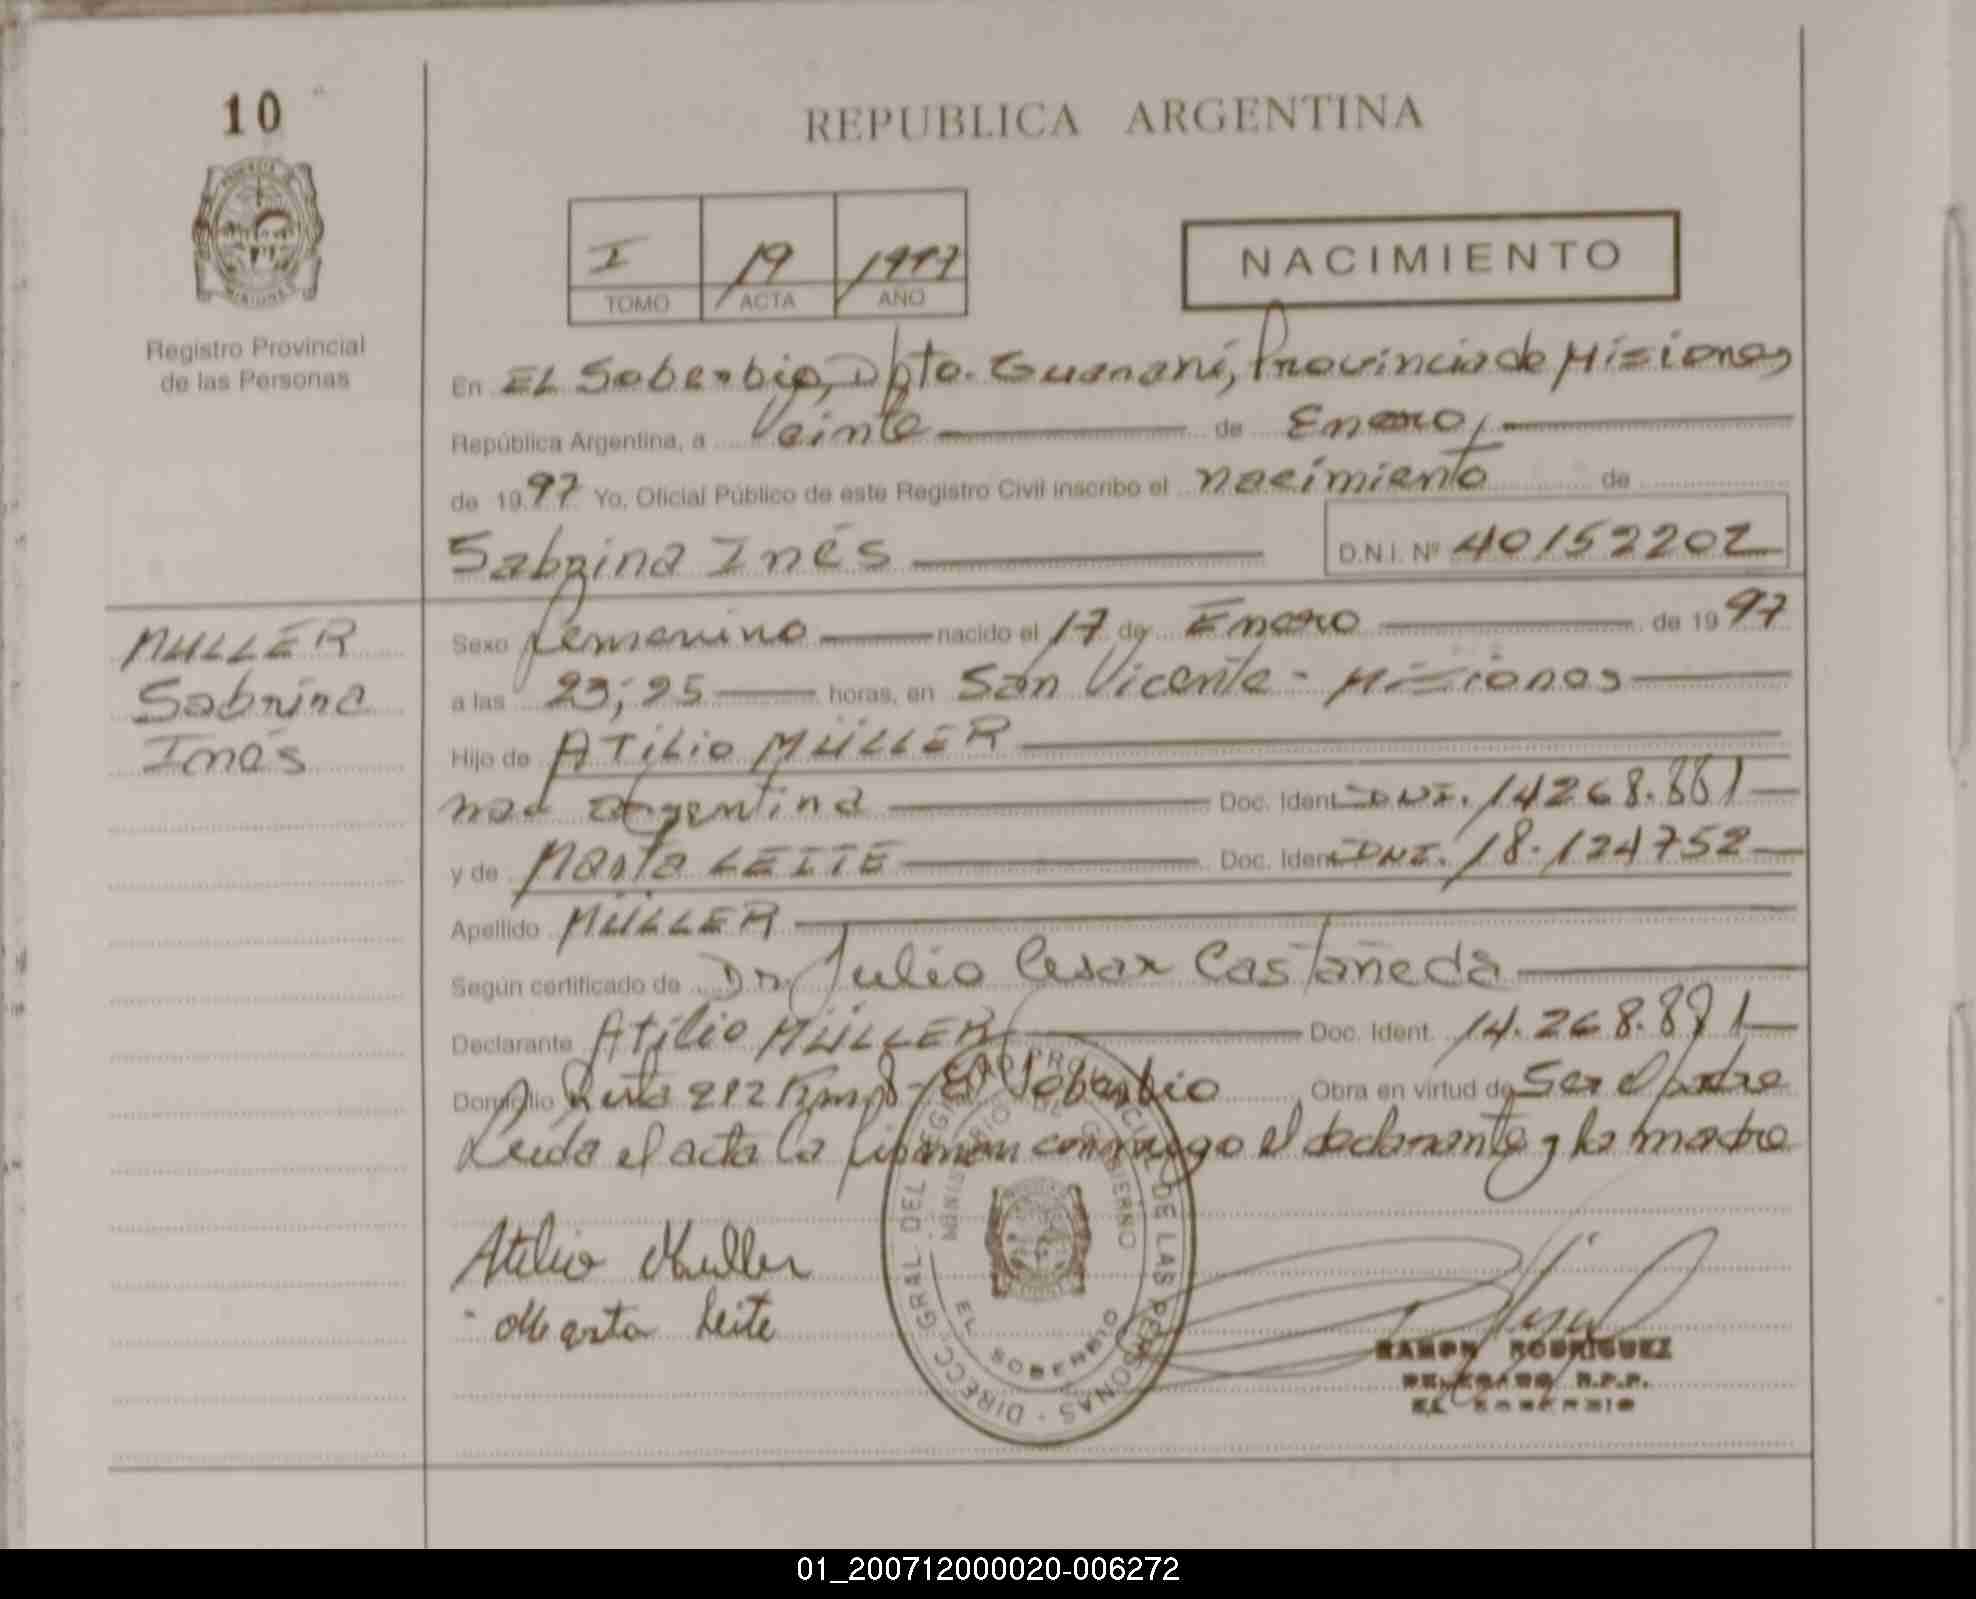 10
REPUBLICA ARGENTINA
I 19 1997
TOMO ACTA AÑO
NACIMIENTO
Registro Provincial
de las Personas
En EL Soberbio, Dpto. Guaraní, Provincia de Misiones
República Argentina, a Veinte de Enero,
de 1997 Yo, Oficial Público de este Registro Civil inscribo el nacimiento de
Sabrina Inés D.N.I. Nº 40152202
MULLER
Sabrina
Inés
Sexo femenino nacido el 17 de Enero de 1997
a las 23;25 horas, en San Vicente - Misiones
Hijo de ATILIO MÜLLER
nac argentina Doc. Ident. DNI. 14268.881
y de Marta LEITE Doc. Ident. DNI. 18.124752
Apellido MÜLLER
Según certificado de Dr. Julio Cesar Castañeda
Declarante Atilio MÜLLER Doc. Ident. 14.268.881
Domicilio Ruta 212 El Soberbio Obra en virtud de Ser el padre
Leída el acta la firman conmigo el declarante y la madre
Atilio Muller
Marta Leite
DIRECC. GRAL DEL REGISTRO PROVINCIAL DE LAS PERSONAS
MINISTERIO DE GOBIERNO
EL SOBERBIO
RAMON RODRIGUEZ
DELEGADO R.P.P.
EL SOBERBIO
01_200712000020-006272